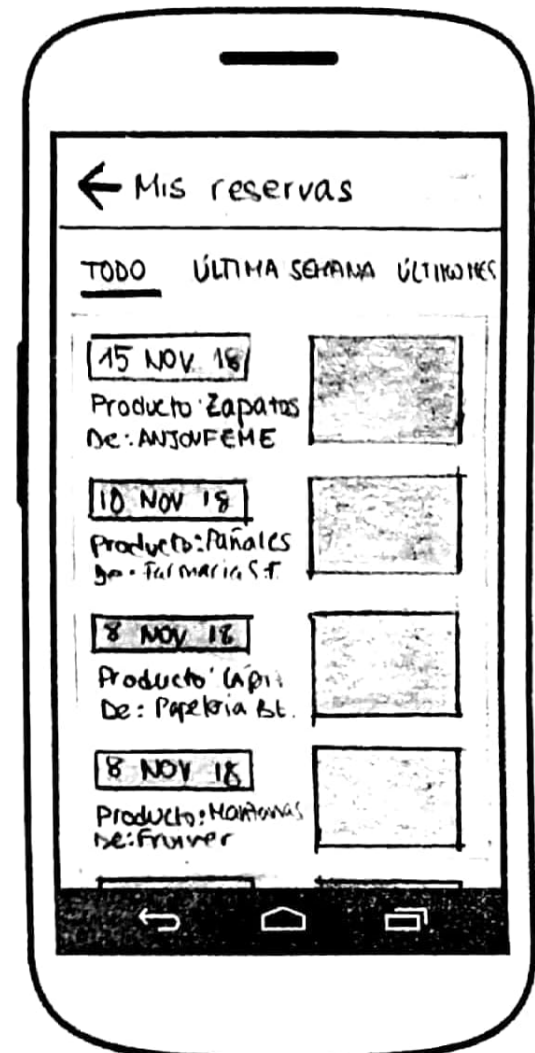 ← Mis reservas
TODO ÚLTIMA SEMANA ÚLTIMO MES
15 NOV 18
Producto: Zapatos
De: ANJOUFEME
10 NOV 18
Producto: Pañales
De: Farmacia S.F.
8 NOV 18
Producto: Lápi
De: Papeleria Bt.
8 NOV 18
Producto: Manzanas
De: Fruver